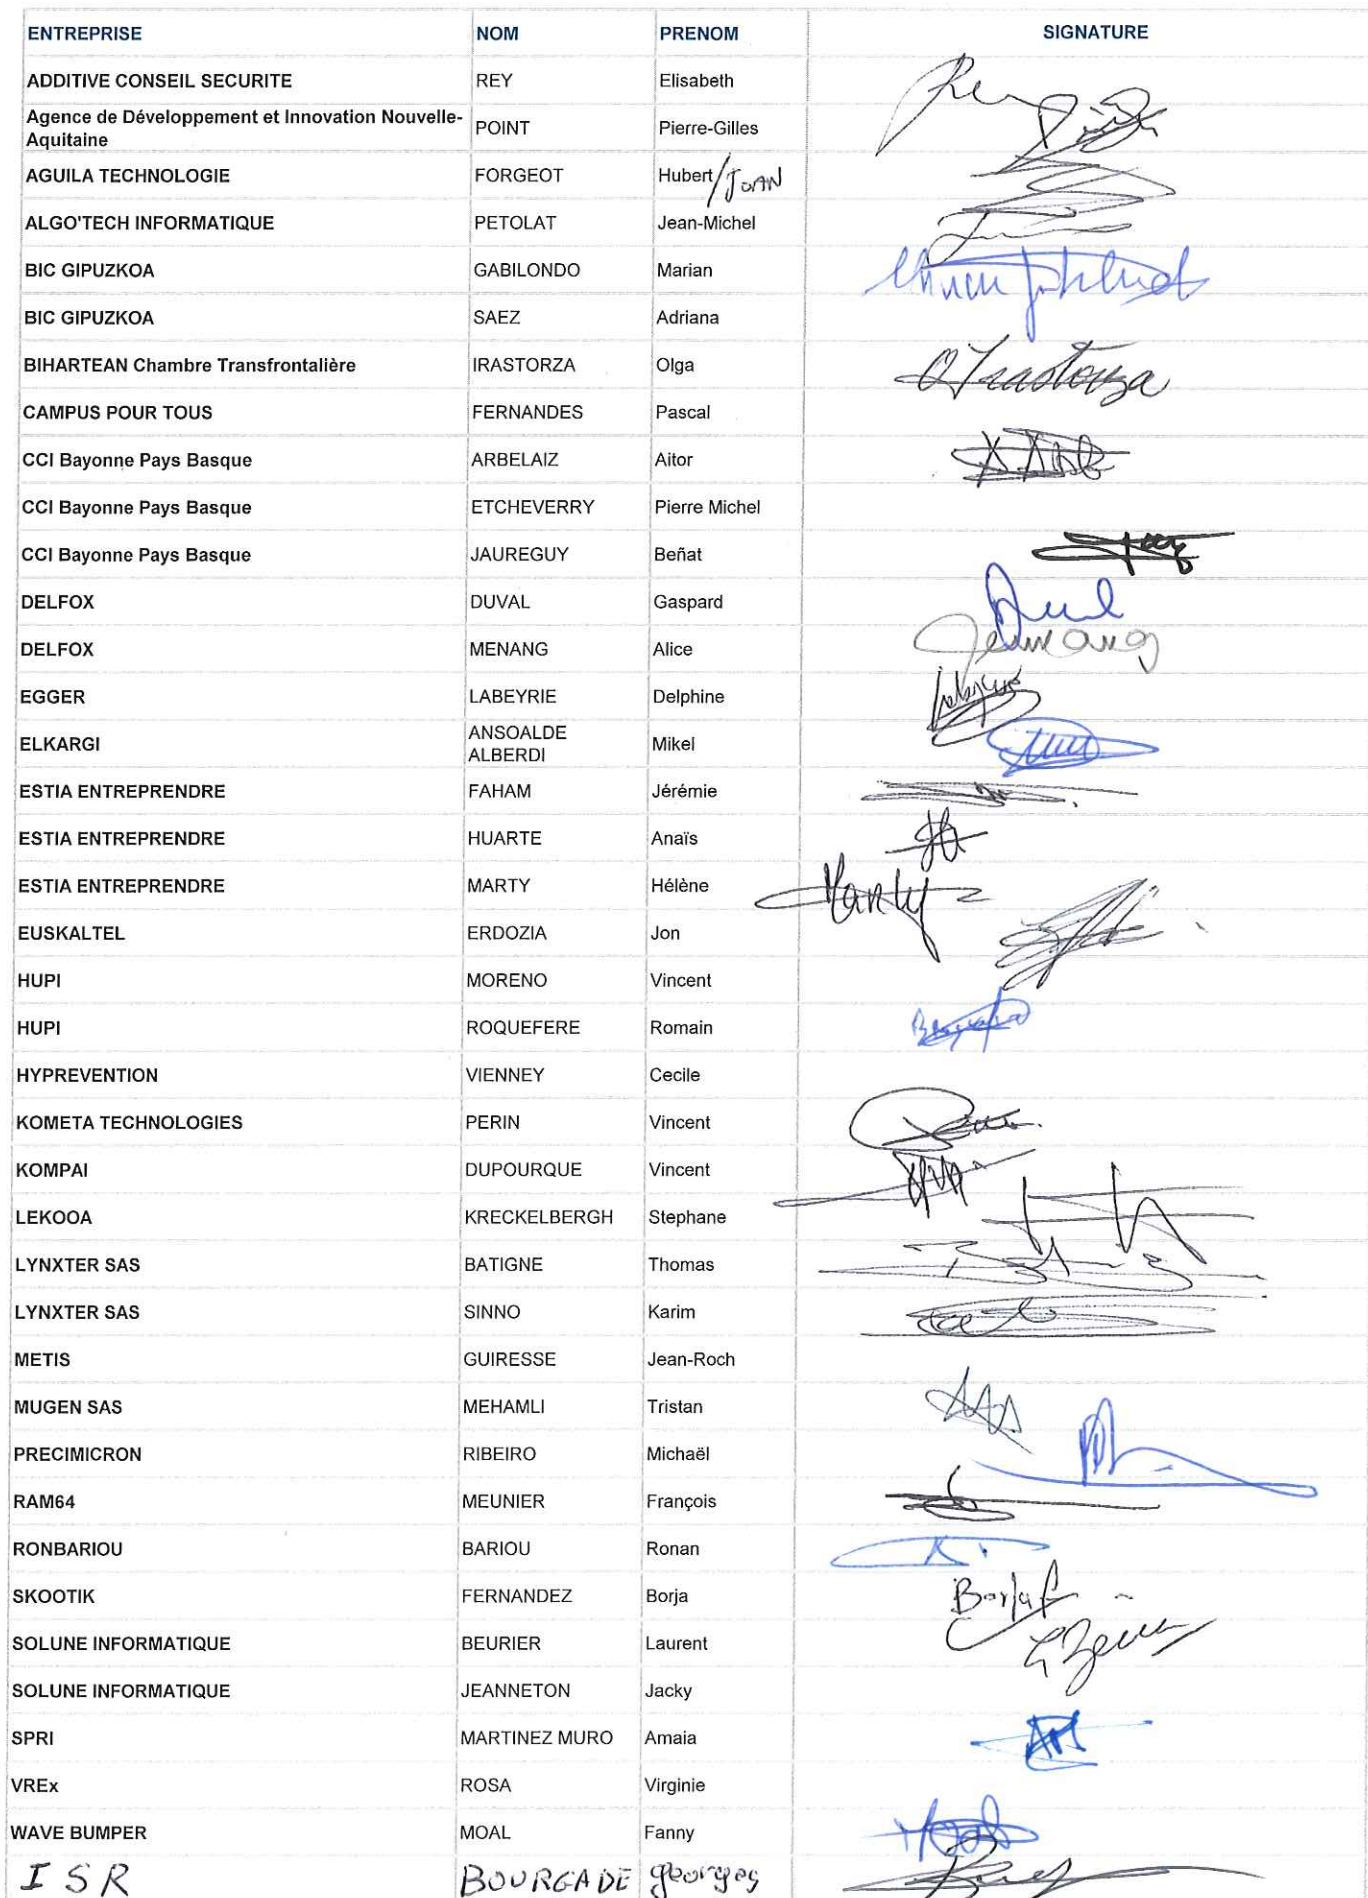 ENTREPRISE NOM PRENOM SIGNATURE
ADDITIVE CONSEIL SECURITE REY Elisabeth
Agence de Développement et Innovation Nouvelle-
Aquitaine POINT Pierre-Gilles
AGUILA TECHNOLOGIE FORGEOT Hubert/JOAN
ALGO'TECH INFORMATIQUE PETOLAT Jean-Michel
BIC GIPUZKOA GABILONDO Marian
BIC GIPUZKOA SAEZ Adriana
BIHARTEAN Chambre Transfrontalière IRASTORZA Olga O Irastorza
CAMPUS POUR TOUS FERNANDES Pascal
CCI Bayonne Pays Basque ARBELAIZ Aitor
CCI Bayonne Pays Basque ETCHEVERRY Pierre Michel
CCI Bayonne Pays Basque JAUREGUY Beñat
DELFOX DUVAL Gaspard
DELFOX MENANG Alice
EGGER LABEYRIE Delphine
ELKARGI ANSOALDE
ALBERDI Mikel
ESTIA ENTREPRENDRE FAHAM Jérémie
ESTIA ENTREPRENDRE HUARTE Anaïs
ESTIA ENTREPRENDRE MARTY Hélène Marty
EUSKALTEL ERDOZIA Jon
HUPI MORENO Vincent
HUPI ROQUEFERE Romain
HYPREVENTION VIENNEY Cecile
KOMETA TECHNOLOGIES PERIN Vincent
KOMPAI DUPOURQUE Vincent
LEKOOA KRECKELBERGH Stephane
LYNXTER SAS BATIGNE Thomas
LYNXTER SAS SINNO Karim
METIS GUIRESSE Jean-Roch
MUGEN SAS MEHAMLI Tristan
PRECIMICRON RIBEIRO Michaël
RAM64 MEUNIER François
RONBARIOU BARIOU Ronan
SKOOTIK FERNANDEZ Borja Borja f
SOLUNE INFORMATIQUE BEURIER Laurent
SOLUNE INFORMATIQUE JEANNETON Jacky
SPRI MARTINEZ MURO Amaia
VREx ROSA Virginie
WAVE BUMPER MOAL Fanny
ISR BOURGADE georges